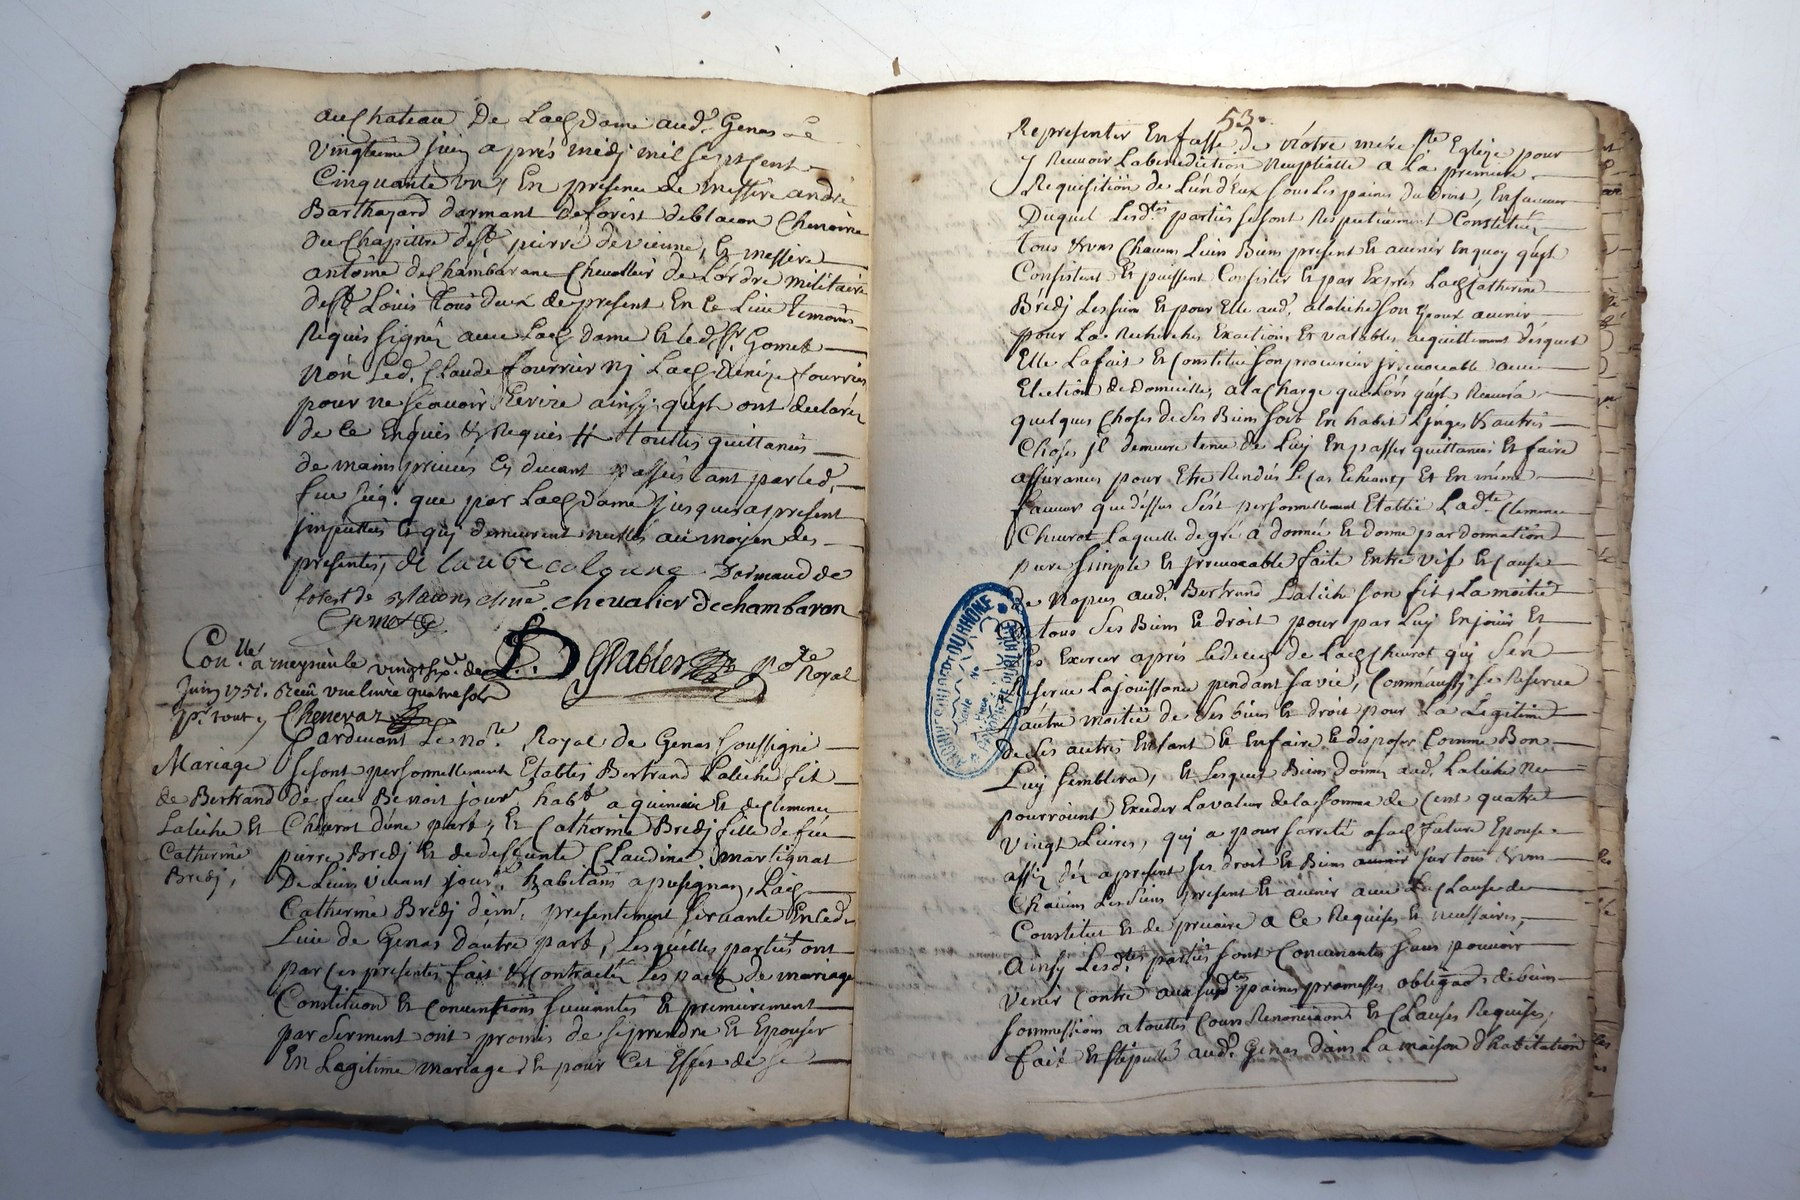 au Chateau De Lad. Dame aud. Genas Le
Vingtieme juin aprés midj mil sept cent
Cinquante un, En presence de messire andré
Barthazard darmant deforest deblacon Chanoine
du Chapittre de st. pierre devienne, et messire
antoine de Chambarane Chevallier de Lordre militaire
de st. Louis tous deux de present En ce Lieu temoins
Requis signés avec Lad. dame et led. sr. Gomet
Non Led. Claude fourrier nj Lad. Denize fourrier
pour ne sçavoir Ecrire ainsy qu'jls ont declarés
de ce Enquis & Requis # touttes quittances
de mains privées Cy devant passées tant par led.
feu sieg. que par Lad. dame jusques apresent
qui demeurent nulles au moyen des
presentes, de laube colonne Darmand de
forest de Blacons chne. chevalier de chambaran
Gomet
Conllé. a meyzieu le vingt six. de
Juin 1751. Reçu une livre quatre sols
pr. tout, Chenevaz
Grabler Nore Royal
Pardevant Le Nore. Royal de Genas soussigné
Mariage
de Bertrand
Laliche et
Catherine
Bredj,
se sont personnellement Etablis Bertrand Laliche fils
de feu Benoit jourr. habt. a quinieu et de Clemence
Cheurot d'une part, Et Catherine Bredj fille de feu
pierre Bredj et de deffunte Claudine martignat
De Leur vivant jourr. habitans a pusignan, Lad.
Catherine Bredj dem. presentement servante En ced.
Lieu de Genas d'autre part, Lesquelles parties ont
par ces presentes fait & contracté Les pact de mariage
Constitution et conventions suivantes et premierement
par serment ont promis de se prendre et Epouser
En Legitime mariage, et pour Cet Effet de se
53.
Representer En fasse de Nôtre mere ste. Eglize pour
j Recevoir La benediction Nuptialle a La premiere
Requisition de L'un d'Eux sous Les paines du droit, En faveur
Duquel Lesdtes. parties se sont Respectivement Constitués
tous & uns Chacuns Leurs Biens present et avenir en quoy qu'jls
Consistent et puissent Consister et par Exprés Lad. Catherine
Bredj Les siens et pour Elle aud. Laliche son Epoux avenir
pour La Recherche Exaction et valables acquittement desquels
Elle La fait et Constitue son procureur jrrevocable avec
Election de Domicille, a la Charge que Lors qu'jl Recevra
quelques Choses de ses Biens soit En habit Linges & autres
Choses jl demeure tenu de Luy En passer quittances et faire
assurances pour Etre Rendus Le Cas Echeant, Et En méme
faveur que dessus s'est personnellement Etablie Ladte. Clemence
Cheurot Laquelle de gré a donnée et donne par donnation
pure simple et jrrevocable faite Entre vif et Cause
de Nopces aud. Bertrand Laliche son fils La moitié
de tous ses Biens et droit pour par Luy En jouir et
Les Exercer aprés Le deces de Lad. Cheurot qui s'en
Reserve La jouissance pendant sa vie, Comm'aussy se Reserve
L'autre moitié de ses biens et droit pour La Legitime
de ses autres Enfant et En faire et disposer Comme Bon
Luy semblera, et Lesquels Biens donnés aud. Laliche Ne
pourroient Exceder La valeur de la somme de Cent quatre
vingt Livres, qui a pour sarreté a sad. future Epouse
affecté dez apresent ses droit et Biens avenir sur tous & uns
Chacuns Les siens present et avenir avec La Clause de
Constitut et de precaire a Ce Requises et necessaires,
Ainsy Lesdtes. parties sont Convenantes sans pouvoir
venir Contre aux susdtes. paines promesses obligaon. de biens
sommissions a touttes Cours Renonciaon. et Clauses Requises,
fait et stipullé aud. Genas dans La maison d'habitation